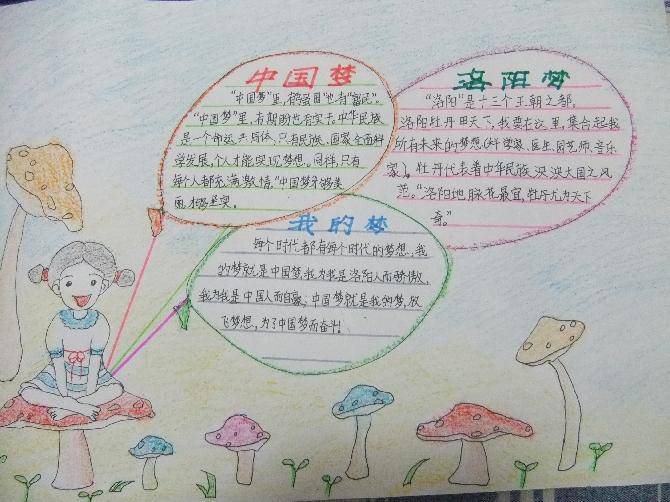 中国梦
"中国梦"里,有强国"也有"富民"。
"中国梦"里,有期盼也有实干。中华民族
是一个命运共同体,只有民族、国家全面科
学发展,个人才能实现梦想。同样,只有
每个人都充满激情,"中国梦才够美
丽,才够坚实。
洛阳梦
"洛阳"是十三个王朝之都,
洛阳牡丹甲天下,我要在这里,集合起我
所有未来的梦想(科学家、医生、园艺师、音乐
家)。牡丹代表着中华民族泱泱大国之风
范。"洛阳地脉花最宜,牡丹尤为天下
奇。"
我的梦
每个时代都有每个时代的梦想,我
的梦就是中国梦我为我是洛阳人而骄傲,
我为我是中国人而自豪、中国梦就是我的梦,放
飞梦想,为了中国梦而奋斗!